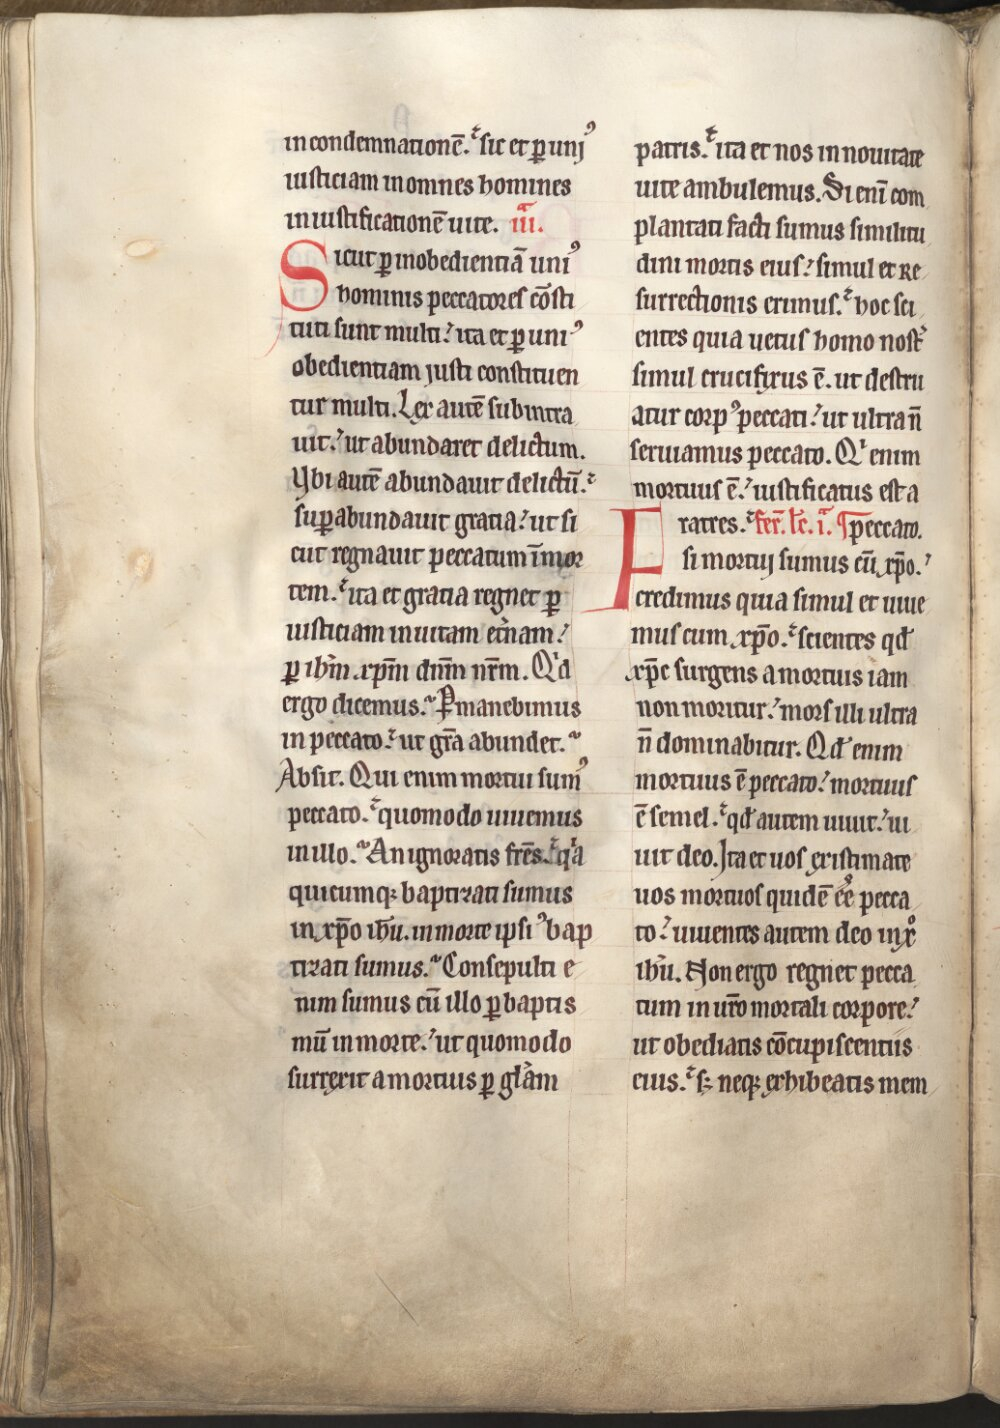 in condemnationē. sic et ꝑ uniꝰ
iusticiam in omnes homines
in iustificationē uite. iii.ᵃ
Sicut ꝑ inobedientiā uniꝰ
hominis peccatores cōsti
tuti sunt multi: ita et ꝑ uniꝰ
obedientiam justi constituen
tur multi. Lex autē subintra
uit: ut abundaret delictum.
Vbi autē abundauit delictū.
suꝑabundauit gratia: ut si
cut regnauit peccatum ī mor
tem. ita et gratia regnet ꝑ
iusticiam in uitam et̄nam:
ꝑ ihm̄ xp̄m dnm̄ nrm̄. Qͥd
ergo dicemus. Ꝑmanebimus
in peccato: ut gr̄a abundet.
Absit. Qui enim mortui sumꝰ
peccato. quomodo uiuemus
in illo. An ignoratis fr̄es. qͥa
quicumqꝫ baptizati sumus
in xp̄o ihū. in morte ipsiꝰ bap
tizati sumus. Consepulti e
nim sumus cū illo ꝑ baptis
mū in morte: ut quomodo
surrexit a mortuis ꝑ gl̄am
patris. ita et nos in nouitate
uite ambulemus. Si enī com
plantati facti sumus similitu
dini mortis eius: simul et re
surrectionis erimus. hoc sci
entes quia uetus homo nost̄
simul crucifixus ē. ut destru
atur corpꝰ peccati: ut ultra n̄
seruiamus peccato. Qͥ enim
mortuus ē: iustificatus est a
Fratres. fer̄. lc̄. i.ᵃ ¶ peccato.
si mortuj sumus cū xp̄o:
credimus quia simul et uiue
mus cum xp̄o. scientes qđ
xp̄c surgens a mortuis iam
non moritur: mors illi ultra
n̄ dominabitur. Qđ enim
mortuus ē peccato: mortuus
ē semel. qđ autem uiuit: ui
uit deo. Ita et uos existimate
uos mortuos quidē ēē pecca
to: uiuentes autem deo in xº
ihū. Non ergo regnet pecca
tum in ur̄o mortali corpore:
ut obediatis cōcupiscentiis
eius. sꝫ neqꝫ exhibeatis mem